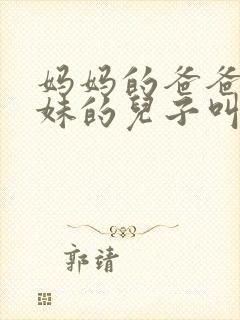 妈妈的爸爸
妹的兒子叫
郭靖